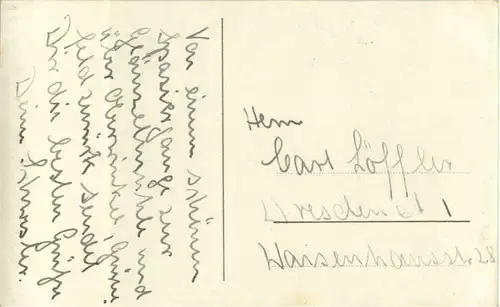 Von einem schönen
Spaziergange zur
Gleinzelmühle und
über Oberwinkel, Grum-
zurück sendet
Dir die besten Grüße
Deine Schwester.
Herrn
Carl Löffler
Dresden A 1
Waisenhausstr. 28